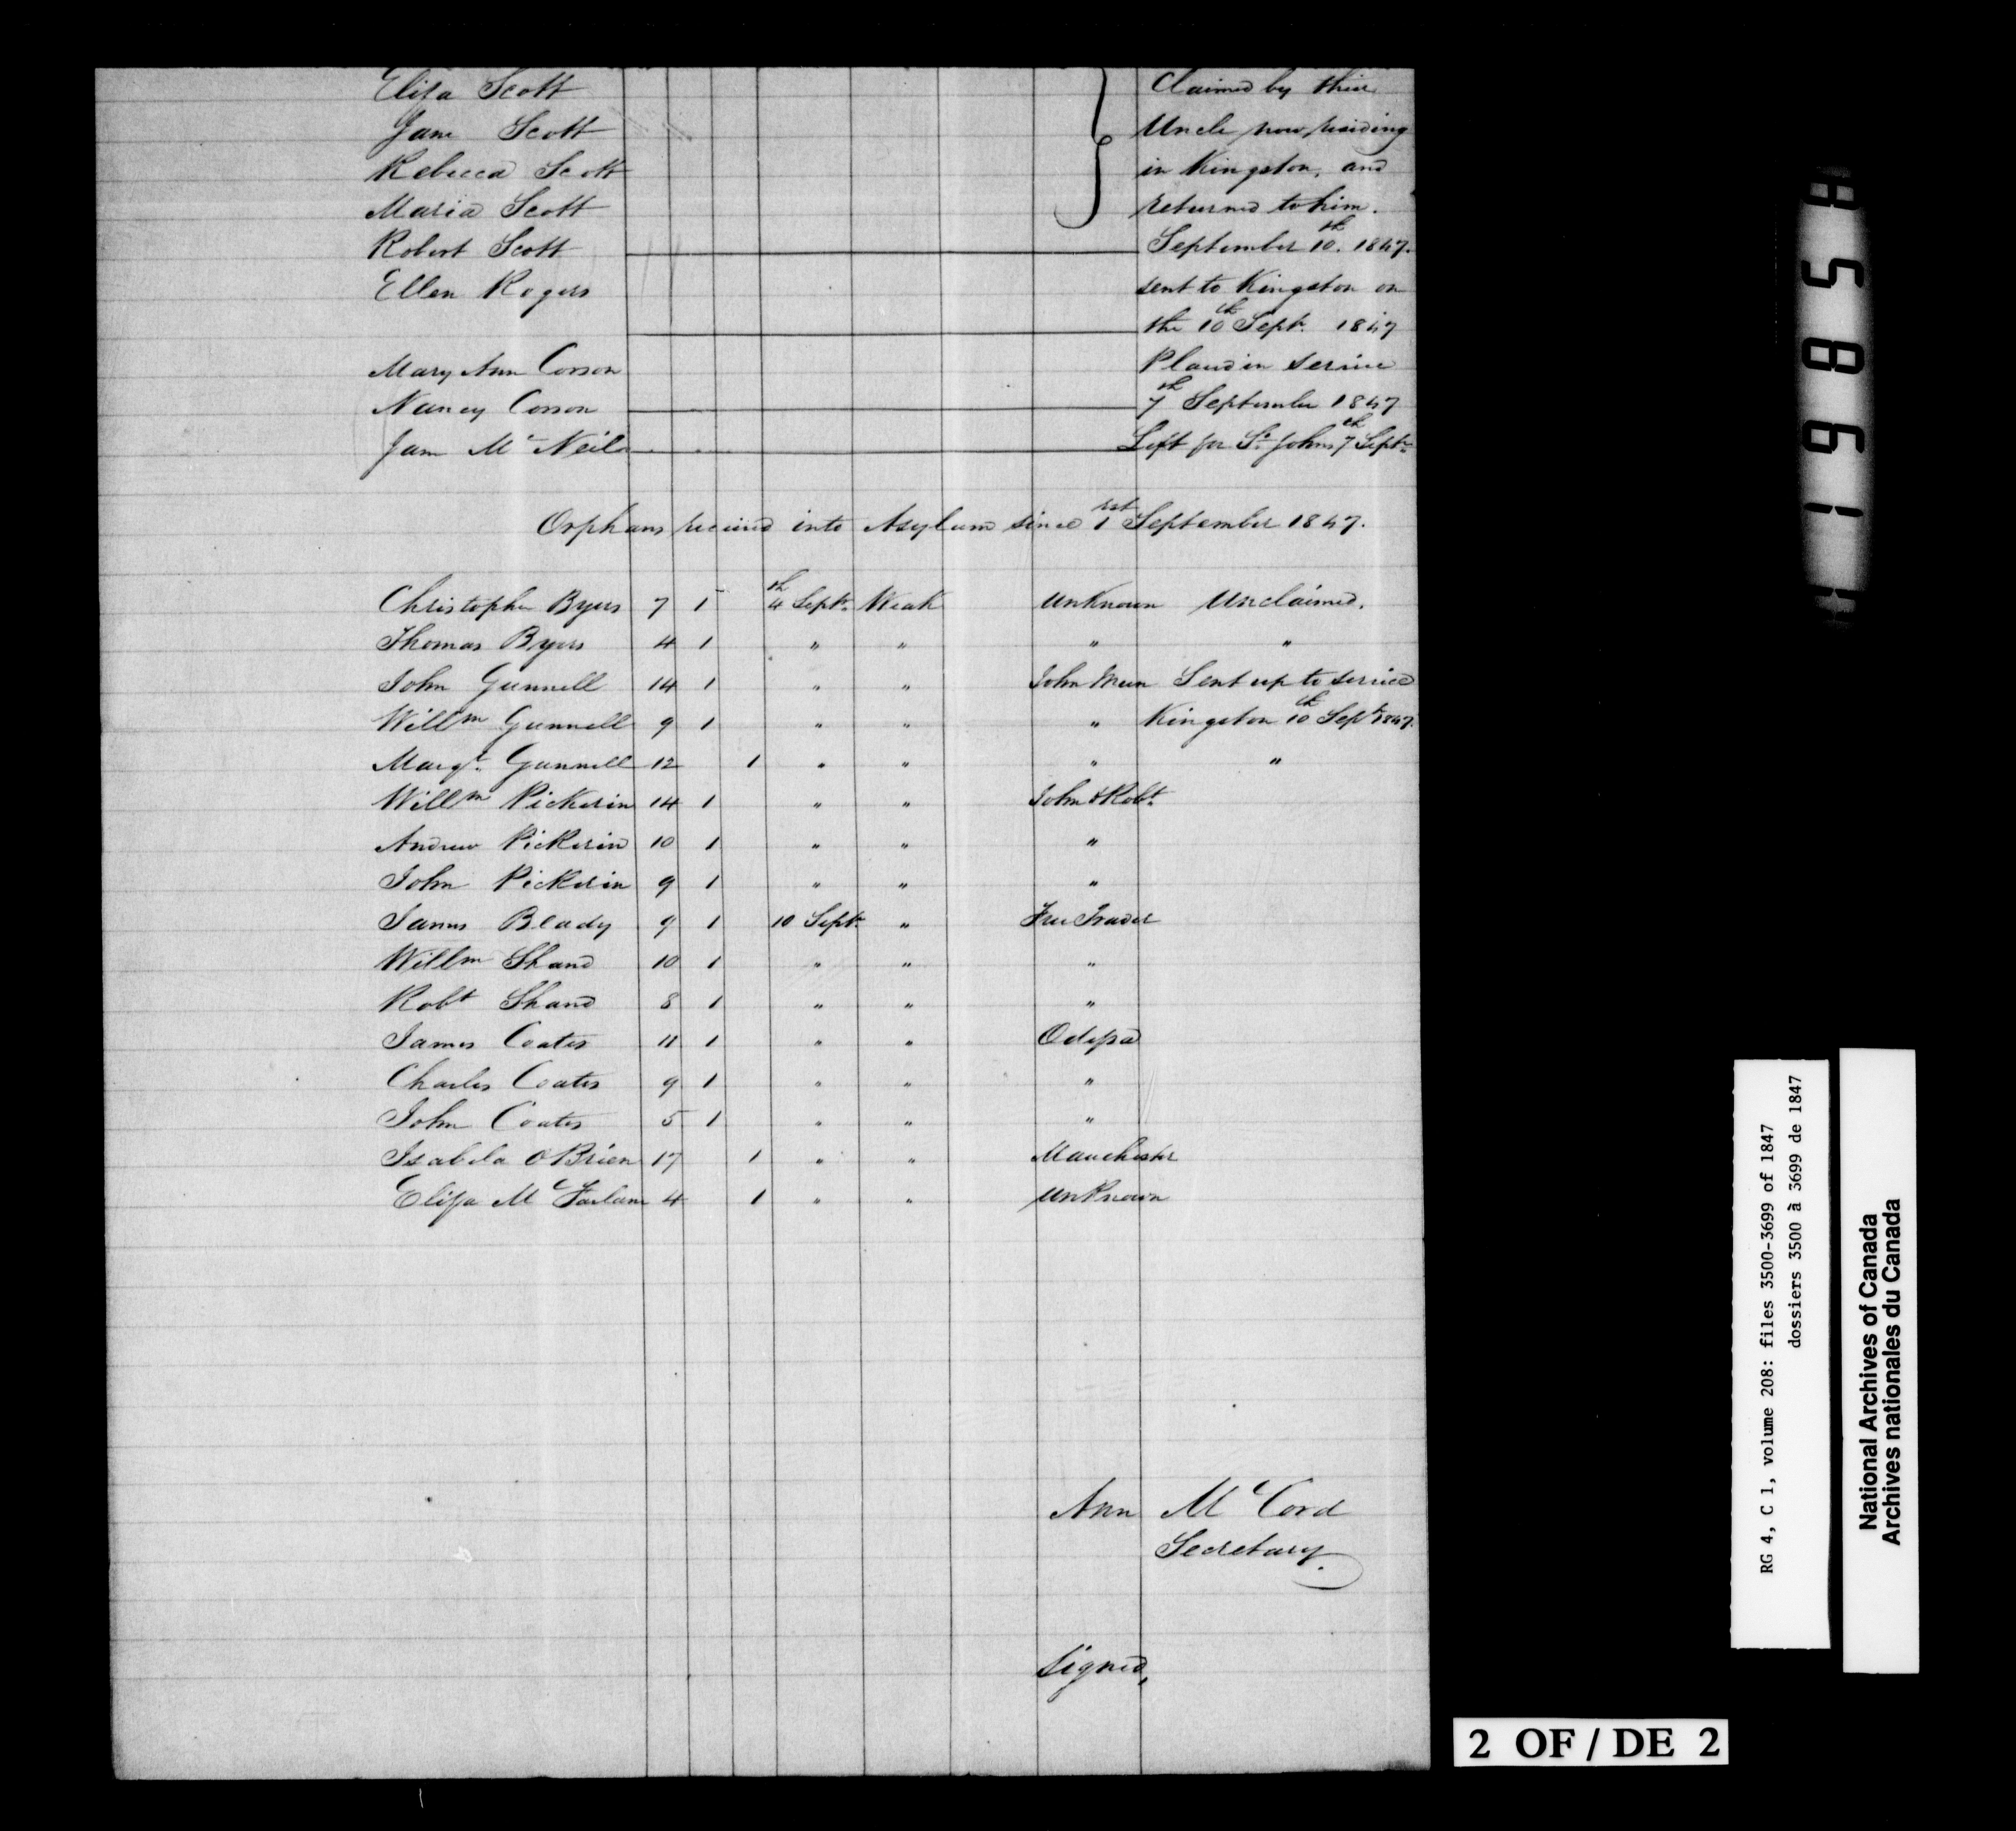 Eliza Scott Claimed by thier
Jane Scott Uncle now residing
Rebecca Scott in Kingston, and
Maria Scott returned to him.
Robert Scott September 10th. 1847.
Ellen Rogers sent to Kingston on
the 10th Septr. 1847
Mary Ann Corson Placed in service
Nancy Corson 7th September 1847
Jane McNeil Left for St. Johns 7th Septr.
Orphans received into Asylum since 1rst September 1847.
Christopher Byers 7 1 4th Septr. Weak Unknown Unclaimed.
Thomas Byers 4 1 " " " "
John Gunnell 14 1 " " John Mun Sent up to service
Willm Gunnell 9 1 " " " Kingston 10th Sept 1847.
Margt. Gunnell 12 1 " " " "
Willm Pickerin 14 1 " " John & Robt.
Andrew Pickerin 10 1 " " "
John Pickerin 9 1 " " "
James Blady 9 1 10 Septr. " Free Trader
Willm Shand 10 1 " " "
Robt Shand 8 1 " " "
James Coates 11 1 " " Odessa
Charles Coates 9 1 " " "
John Coates 5 1 " " "
Isabela O'Brien 17 1 " " Manchester
Eliza McFarlane 4 1 " " Unknown
Ann McCord
Secretary.
Signed,
2 OF / DE 2
RG 4, C 1, volume 208: files 3500-3699 of 1847
dossiers 3500 à 3699 de 1847
National Archives of Canada
Archives nationales du Canada